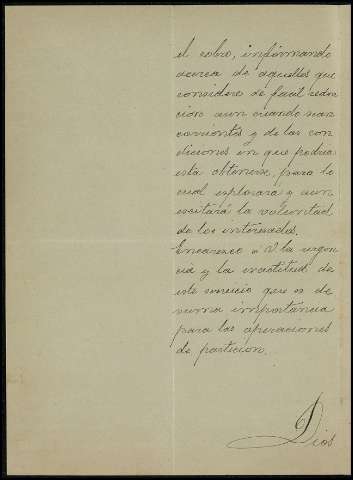 el cobro, informando
acerca de aquellos que
considere de facil reden
cion aun cuando sean
corrientes y de las con
diciones en que podria
esta obtenerse, para lo
cual explorará y aun
excitará la voluntad
de los interesados.
Encarezco a V. la urgen
cia y la exactitud de
este servicio que es de
suma importancia
para las operaciones
de particion.
Dios